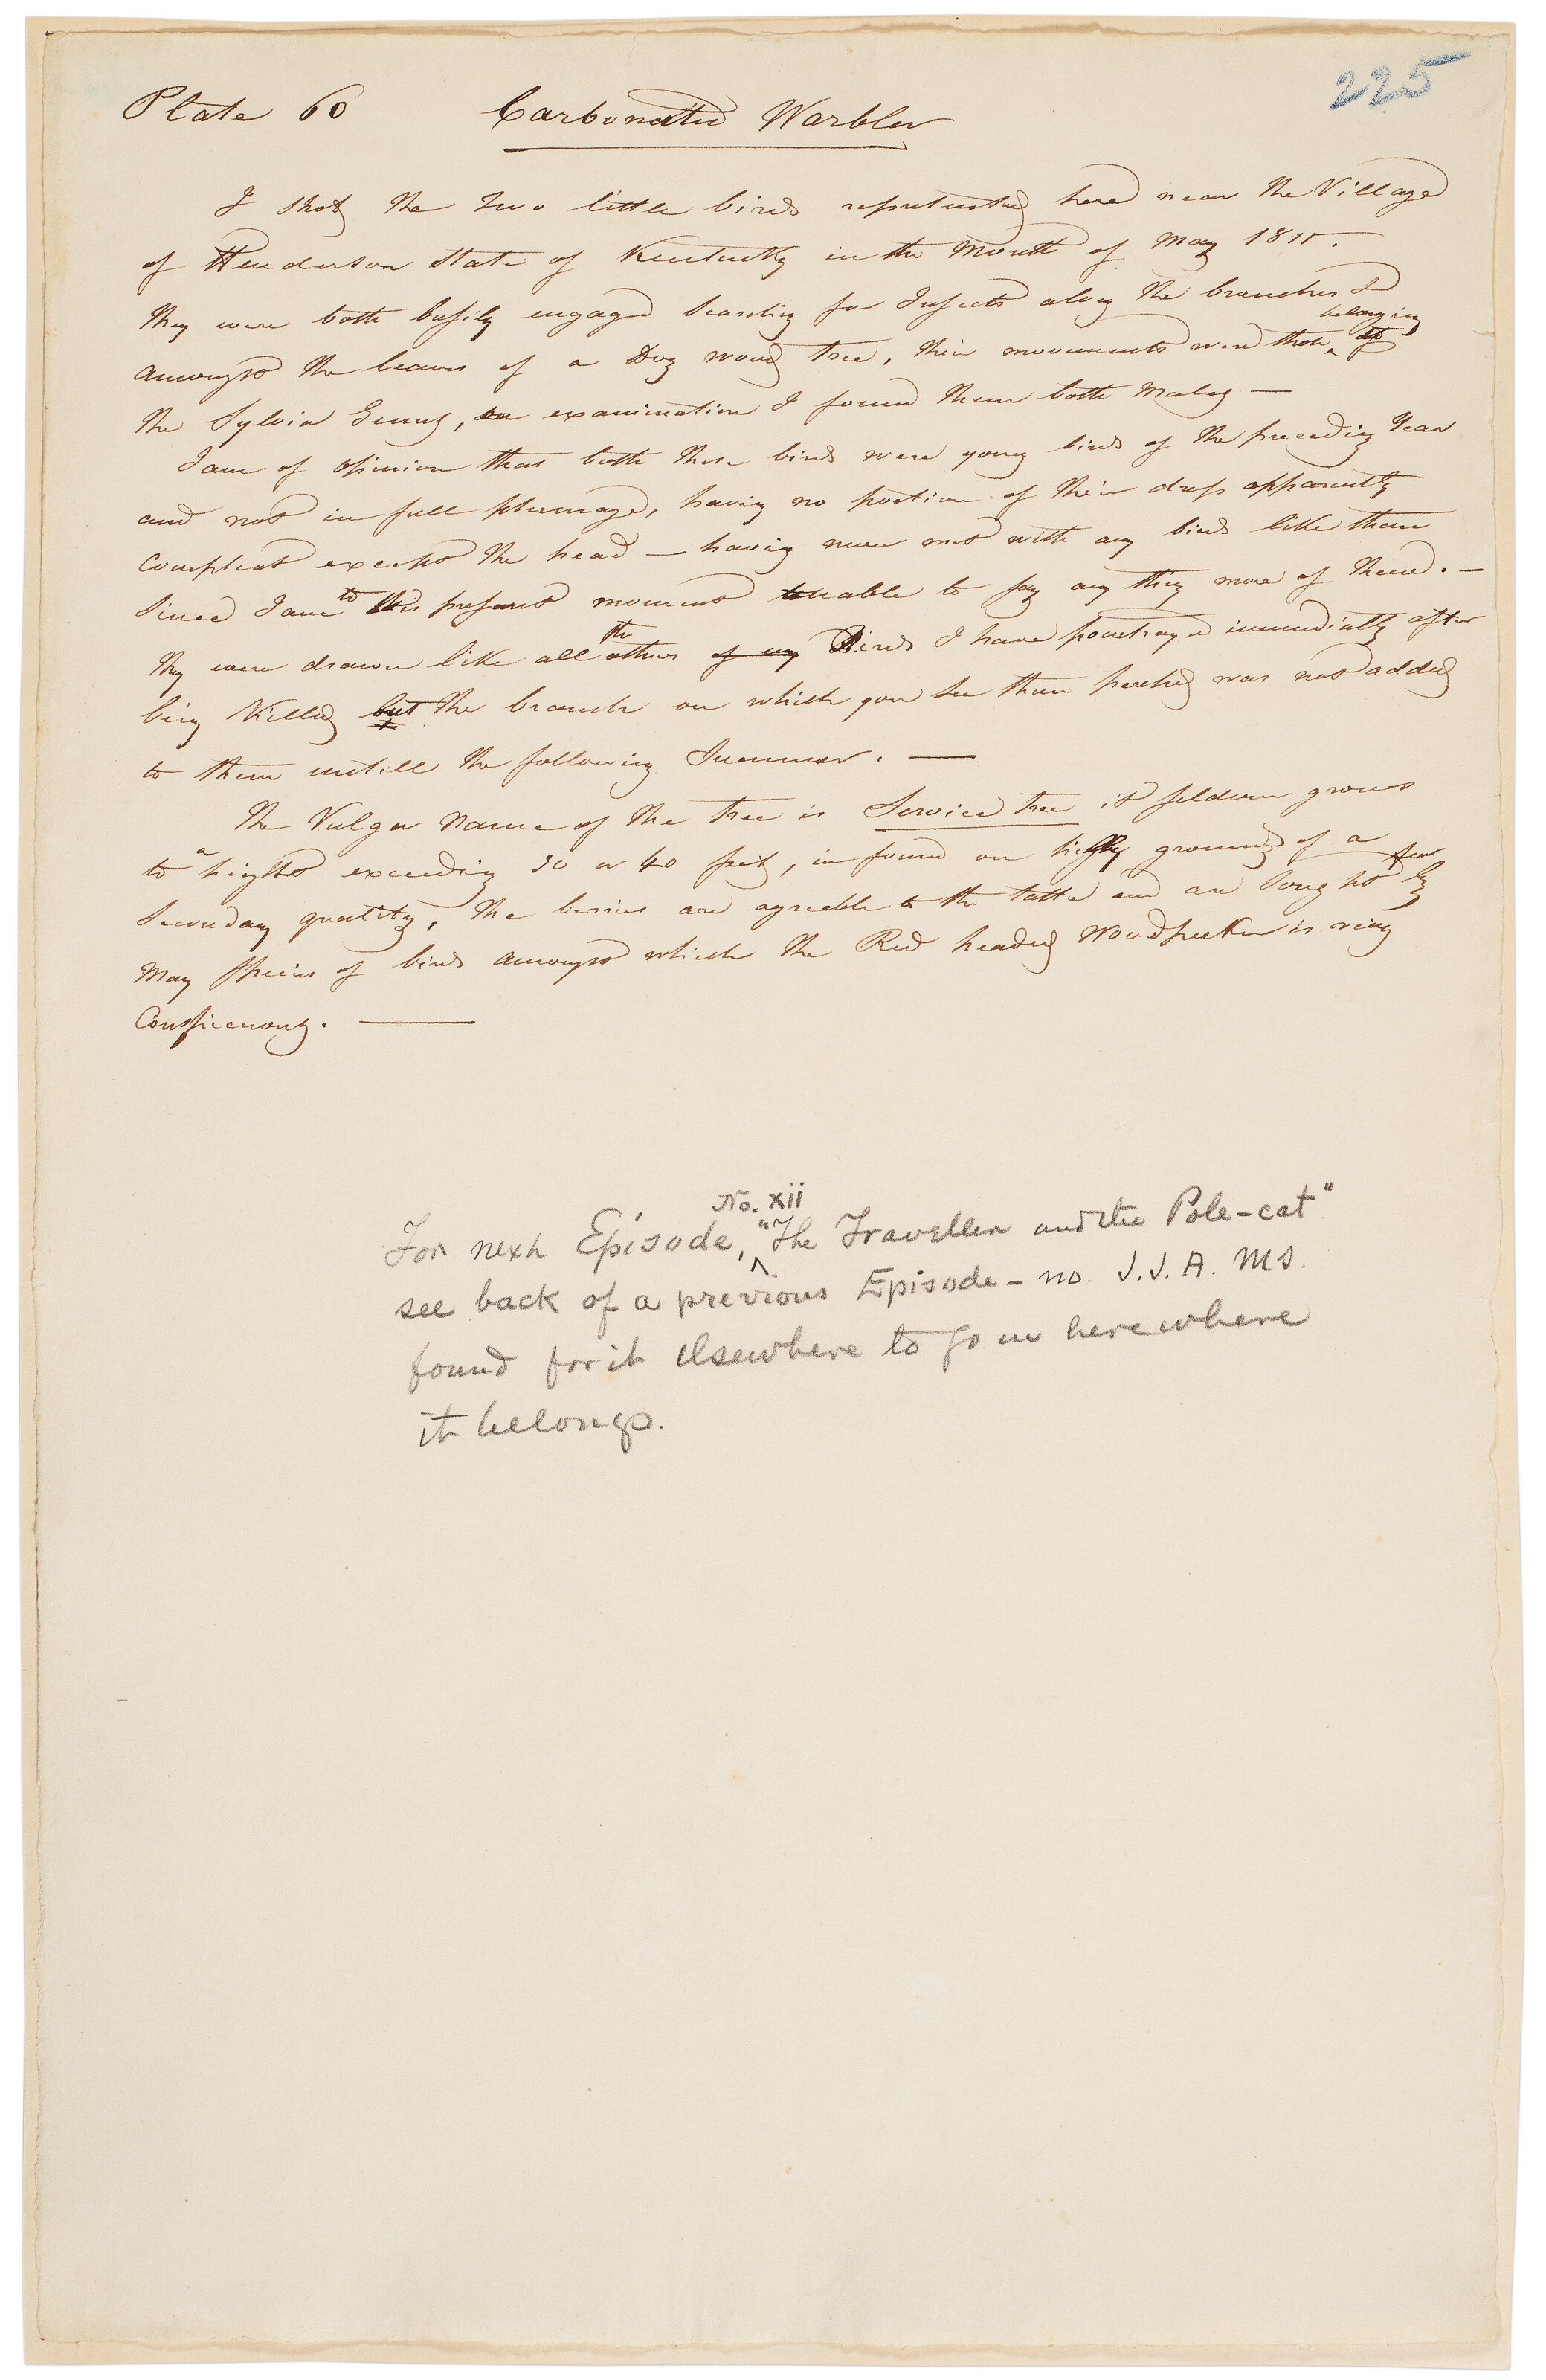 225
Plate 60 Carbonated Warbler
I shot the two little birds represented here near the Village
of Henderson State of Kentucky in the Month of May 1811.
they were both busily engaged Searching for Insects along the branches &
belonging
amongst the leaves of a Dog wood tree, their movements were those ^ to
the Sylvia Genus, on examination I found them both Males —
I am of opinion that both these birds were young birds of the preceding Year
and not in full plumage, having no portion of their dress apparently
Compleat except the head — having never met with any birds like them
Since I am to this present moment unable to say any thing more of them. —
They were drawn like all the others of my Birds I have pourtrayed immediatly after
being Killed but the branch on which you See them perched was not added
to them untill the following Summer. —
The Vulgar Name of the tree is Service tree it seldom grows
to a hight exceeding 30 or 40 feet, is found on hilly grounds of a
Secondary quality, the berries are agreable to the taste and are Sought for by
Many Species of birds amongst which the Red headed Woodpecker is very
Conspicuous. —
No. xii
For next Episode, ^ "The Traveller and the Pole-cat"
see back of a previous Episode - no. J.J.A. MS.
found for it elsewhere to go in here where
it belongs.